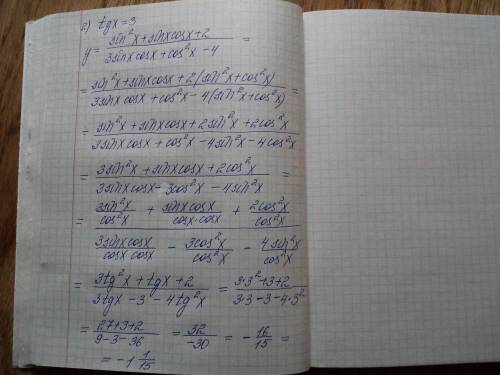 г) tgx = 3
y = (sin²x + sinxcosx + 2) / (3sinxcosx + cos²x - 4) =
= (sin²x + sinxcosx + 2(sin²x + cos²x)) / (3sinxcosx + cos²x - 4(sin²x + cos²x)) =
= (sin²x + sinxcosx + 2sin²x + 2cos²x) / (3sinxcosx + cos²x - 4sin²x - 4cos²x) =
= (3sin²x + sinxcosx + 2cos²x) / (3sinxcosx - 3cos²x - 4sin²x) =
= (3sin²x/cos²x + sinxcosx/cosx·cosx + 2cos²x/cos²x) / (3sinxcosx/cosxcosx - 3cos²x/cos²x - 4sin²x/cos²x) =
= (3tg²x + tgx + 2) / (3tgx - 3 - 4tg²x) = (3·3² + 3 + 2) / (3·3 - 3 - 4·3²) =
= (27 + 3 + 2) / (9 - 3 - 36) = 32 / -30 = - 16/15 =
= -1 1/15